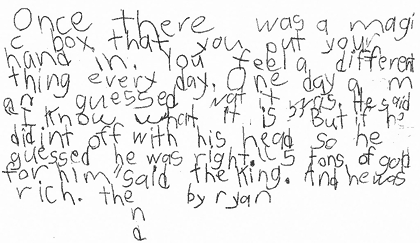 Once there was a magi
c box that you put your
hand in. You feel a different
thing every day. One day a m
an guessed what it was. He said
I know what it is But if he
didint off with his head so he
guessed he was right. 5 tons of gold
for him" said the King. And he was
rich. the by ryan
n
d